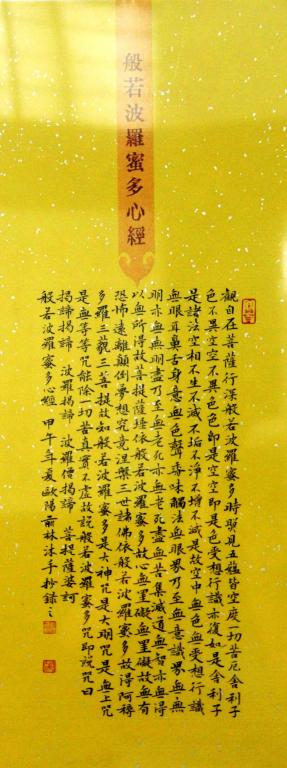 般若波羅蜜多心經
觀自在菩薩行深般若波羅蜜多時照見五蘊皆空度一切苦厄舍利子
色不異空空不異色色即是空空即是色受想行識亦復如是舍利子
是諸法空相不生不滅不垢不淨不增不減是故空中無色無受想行識
無眼耳鼻舌身意無色聲香味觸法無眼界乃至無意識界無無
明亦無無明盡乃至無老死亦無老死盡無苦集滅道無智亦無得
以無所得故菩提薩埵依般若波羅蜜多故心無罣礙無罣礙故無有
恐怖遠離顛倒夢想究竟涅槃三世諸佛依般若波羅蜜多故得阿耨
多羅三藐三菩提故知般若波羅蜜多是大神咒是大明咒是無上咒
是無等等咒能除一切苦真實不虛故說般若波羅蜜多咒即說咒曰
揭諦揭諦 波羅揭諦 波羅僧揭諦 菩提薩婆訶
般若波羅蜜多心經 甲午年夏歐陽林沐手抄錄之